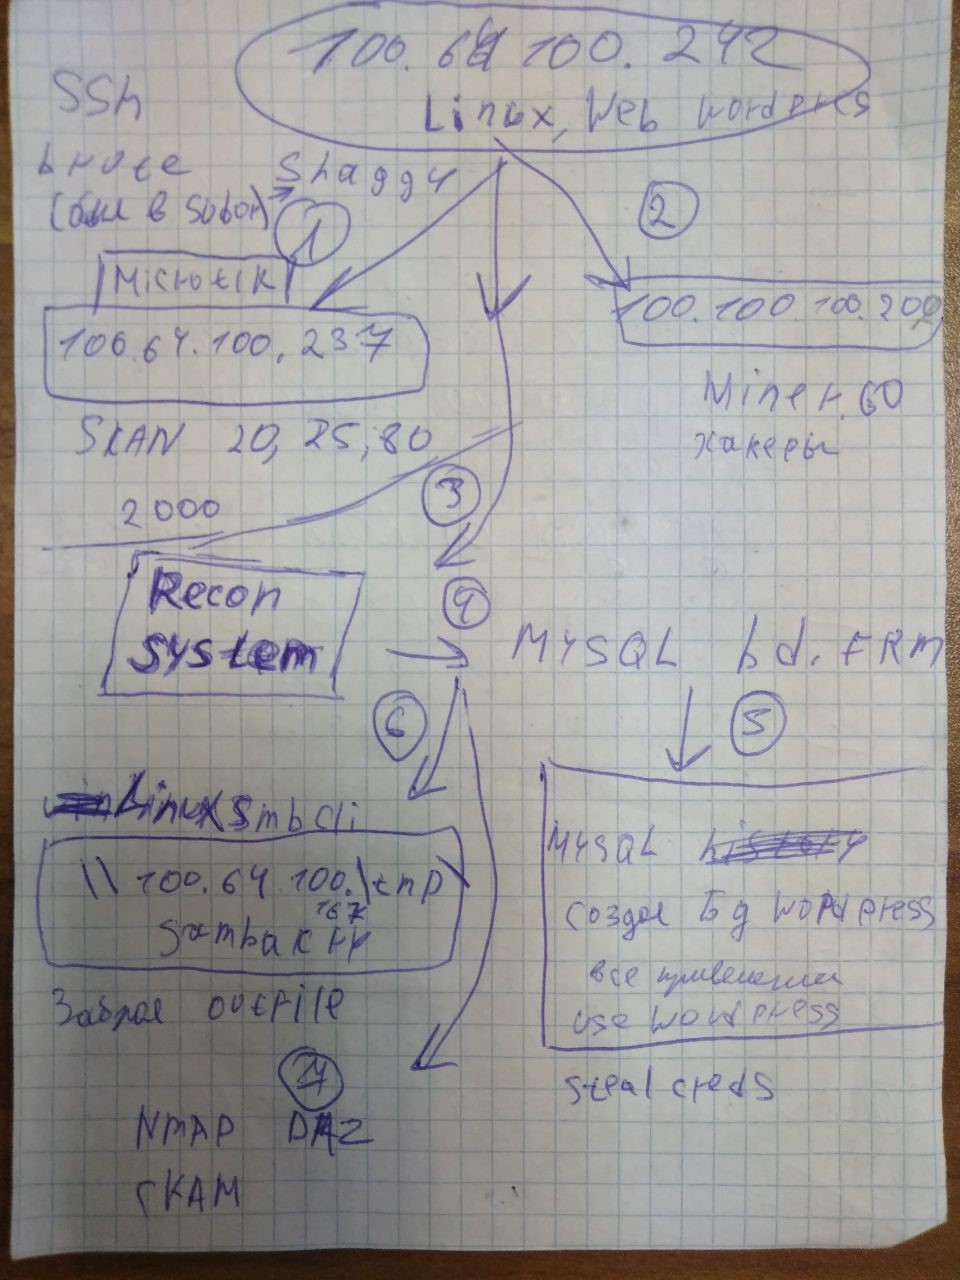 100.64 100.242
Linux, Web wordpres
SSh
brute Shaggy
(был в
1
2
Microtik
100.64.100.237
100.100.100.200
SKAN 20, 25, 80
Miner.GO
хакеры
2000
3
Recon
system
4
MYSQL bd. FRM
6
5
Linux Smbcli
\\ 100.64.100.\tmp
167
sambacry
MYSQL
создал БД WordPress
все привелегии
use wordpress
Забрал outfile
steal creds
NMAP DMZ
СКАН